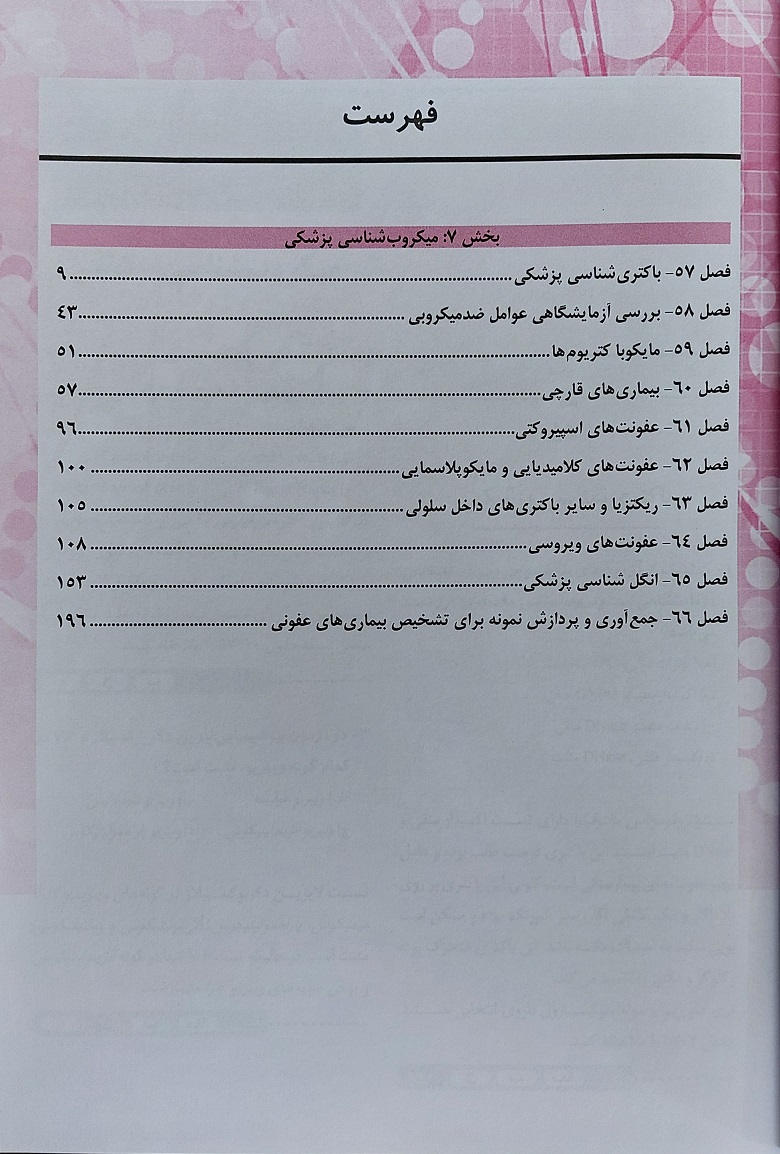 فهرست
بخش ۷: میکروب‌شناسی پزشکی
فصل ۵۷- باکتری‌شناسی پزشکی ........ ۹
فصل ۵۸- بررسی آزمایشگاهی عوامل ضدمیکروبی ........ ۴۳
فصل ۵۹- مایکوباکتریوم‌ها ........ ۵۱
فصل ۶۰- بیماری‌های قارچی ........ ۵۷
فصل ۶۱- عفونت‌های اسپیروکتی ........ ۹۶
فصل ۶۲- عفونت‌های کلامیدیایی و مایکوپلاسمایی ........ ۱۰۰
فصل ۶۳- ریکتزیا و سایر باکتری‌های داخل سلولی ........ ۱۰۵
فصل ۶۴- عفونت‌های ویروسی ........ ۱۰۸
فصل ۶۵- انگل شناسی پزشکی ........ ۱۵۳
فصل ۶۶- جمع‌آوری و پردازش نمونه برای تشخیص بیماری‌های عفونی ........ ۱۹۶